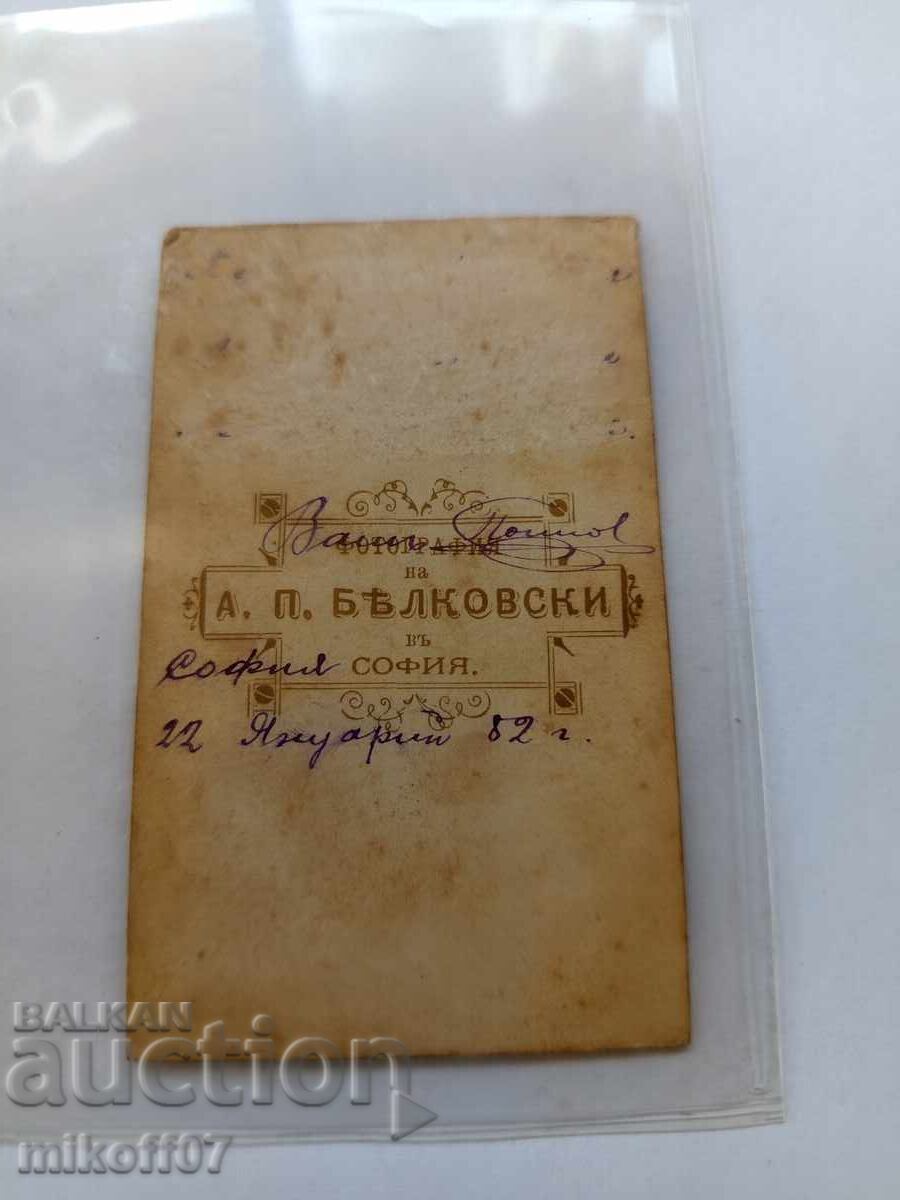 Ваш Попов
ФОТОГРАФИЯ
на
А. П. БѢЛКОВСКИ
въ
СОФИЯ.
София
22 Януарий 82 г.
BALKAN
auction
mikoff07